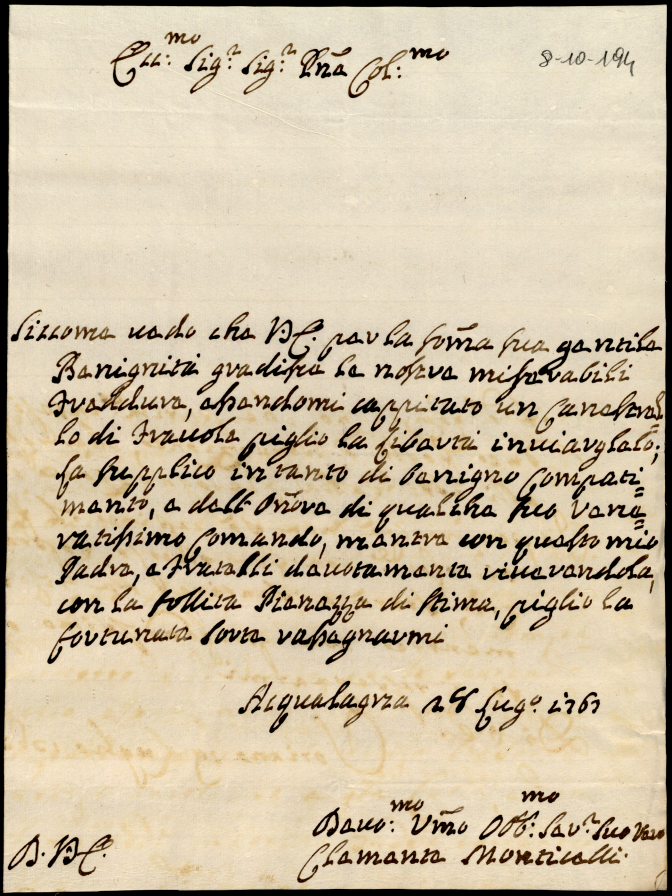 Ecc:mo Sig:r Sig:r Pñe Col:mo
8-10-194
Siccome vedo che V.E. per la som̃a sua gentile
Benignità gradisce le nostre miserabili
Freddure, essendomi cappitato un Canestrel
lo di Fravole piglio la libertà inviarglelo;
La supplico intanto di benigno Compati=
mento, e dell' Onore di qualche suo Vene=
ratissimo Comando, mentre con questo mio
Padre, e Fratelli devotamente riverendola,
con la sollita Pienezza di stima, piglio la
fortunata sorte rassegnarmi
Acqualagna 28 Lug.o 1767
D. V.E.
Devo:mo Vm̃o Obb:mo Ser:r Suo Vero
Clemente Monticelli